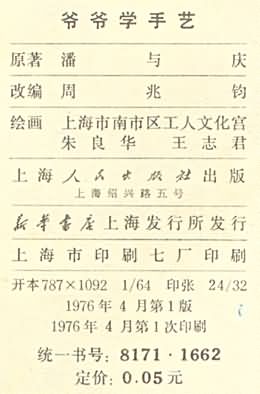 爷爷学手艺
原著 潘与庆
改编 周兆钧
绘画 上海市南市区工人文化宫
朱良华 王志君
上海人民出版社出版
上海绍兴路五号
新华书店上海发行所发行
上海市印刷七厂印刷
开本787×1092 1/64 印张 24/32
1976年4月第1版
1976年4月第1次印刷
统一书号：8171·1662
定价：0.05元